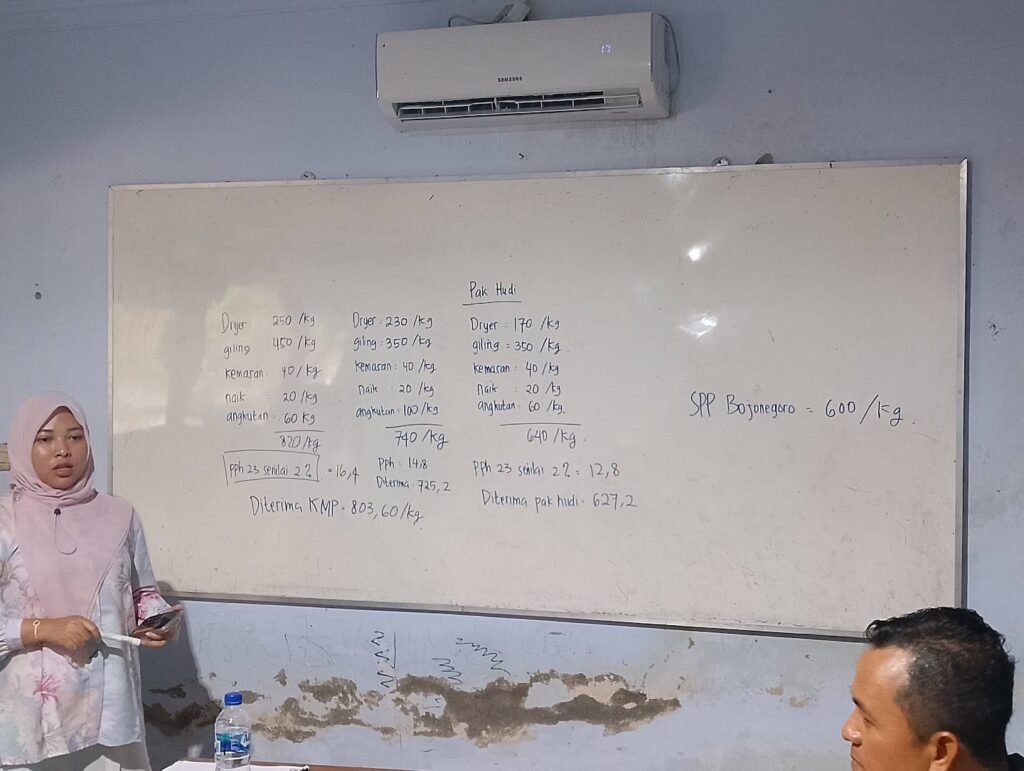 17
SAMSUNG
Dryer : 250 /kg
giling : 450 /kg
kemasan : 40 / kg
naik : 20 / kg
angkutan : 60 kg
820/kg
PPh 23 senilai 2% = 16,4
Diterima KMP = 803,60/kg
Dryer : 230 /kg
giling : 350 /kg
kemasan : 40 /kg
naik : 20 /kg
angkutan : 100 /kg
740 /kg
PPh = 14,8
Diterima : 725,2
Pak Hudi
Dryer : 170 /kg
giling = 350 /kg.
kemasan : 40 /kg
naik : 20 /kg
angkutan : 60 /kg.
640 /kg.
PPh 23 senilai 2% = 12,8
Diterima pak hudi = 627,2
SPP Bojonegoro = 600 /kg.